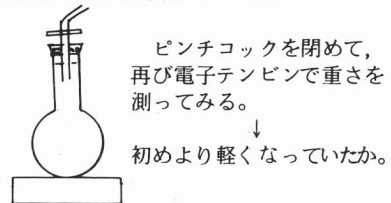 ピンチコックを閉めて,
再び電子テンビンで重さを
測ってみる。
↓
初めより軽くなっていたか。